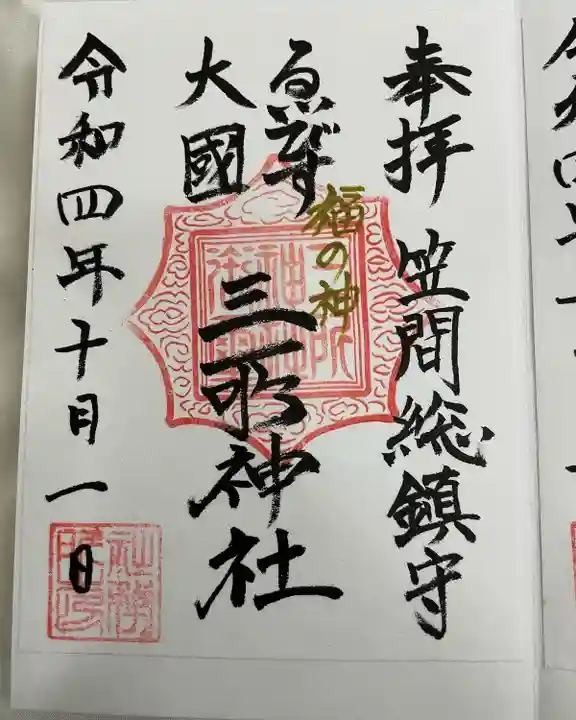 奉拝 笠間総鎮守
ゑびす
福の神
大國
三所神社
令和四年十月一日